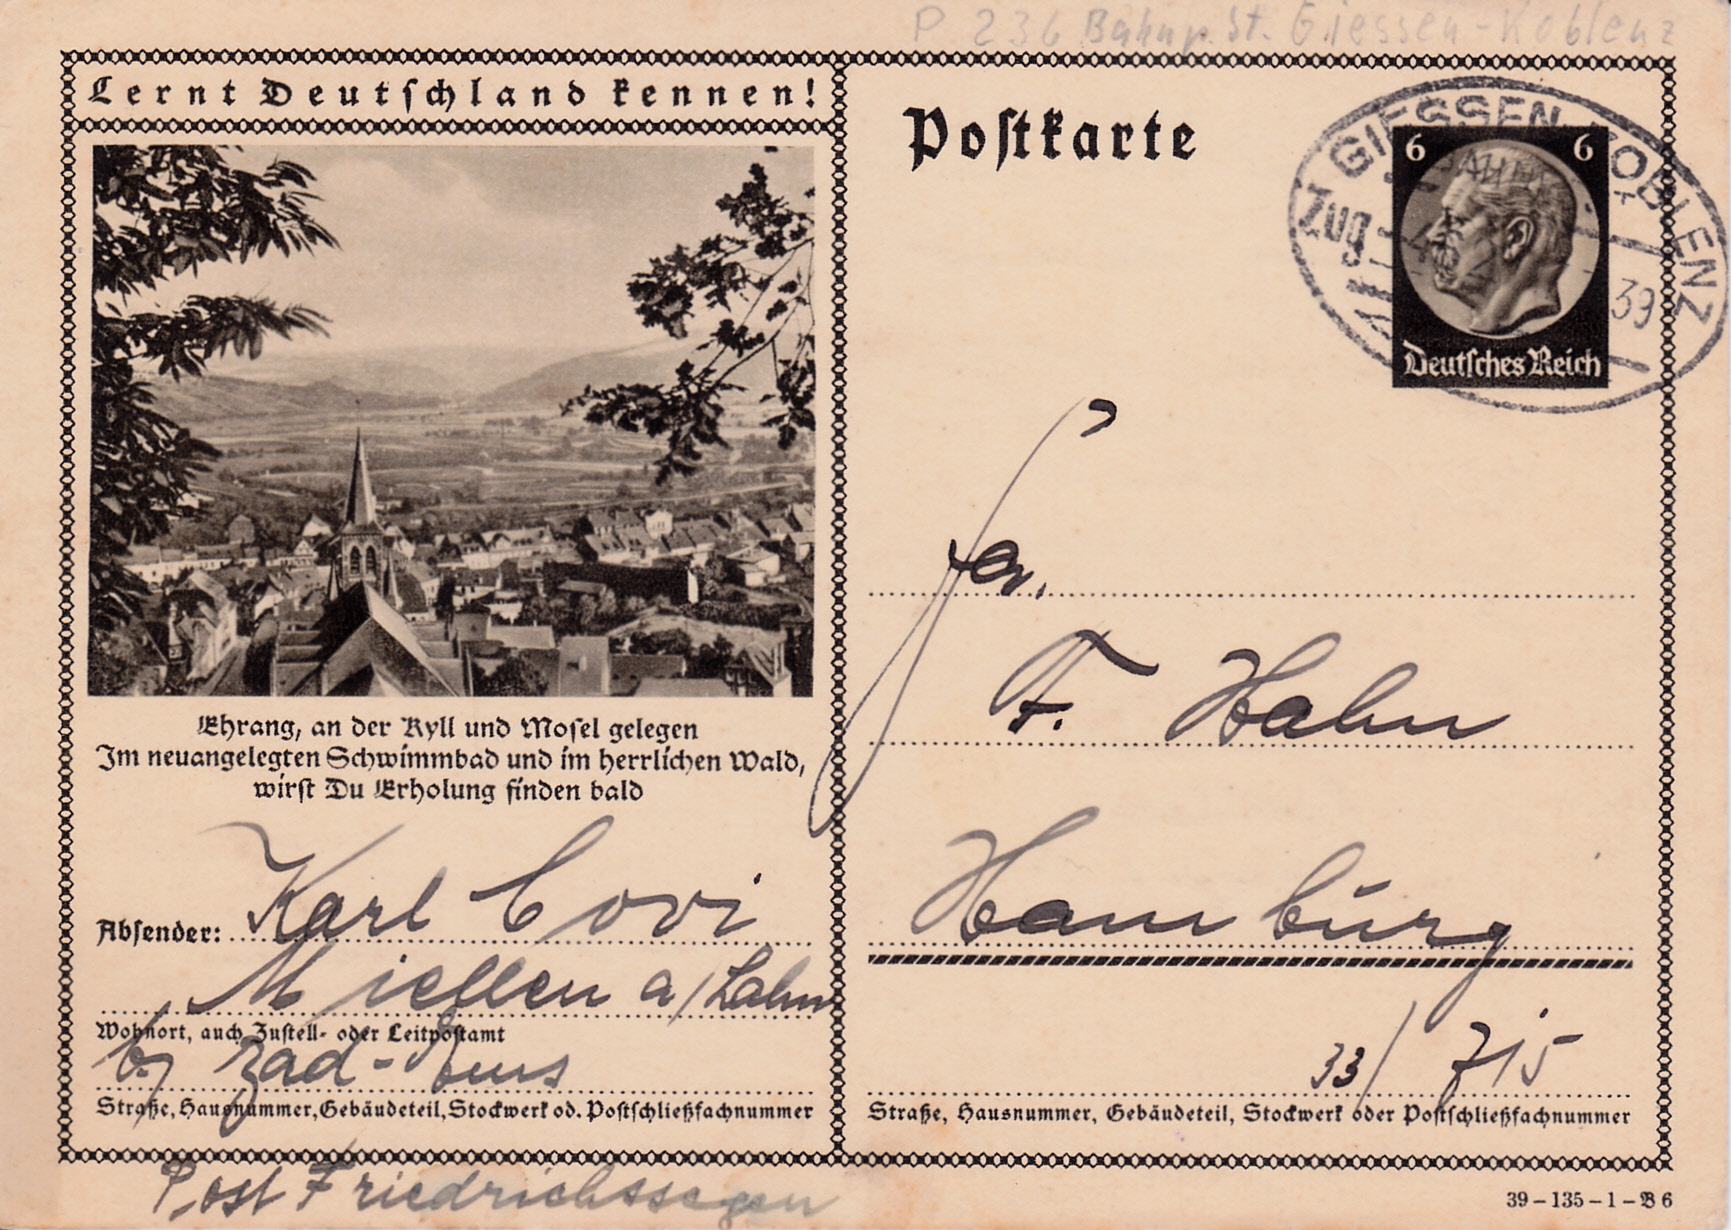 P 236 Bahnp. St. Giessen-Koblenz
Lernt Deutſchland kennen!
Ehrang, an der Kyll und Moſel gelegen
Im neuangelegten Schwimmbad und im herrlichen Wald,
wirſt Du Erholung finden bald
Abſender: Karl Covi
Miellen a/Lahn
Wohnort, auch Zuſtell- oder Leitpoſtamt
b/ Bad-Ems
Straße, Hausnummer, Gebäudeteil, Stockwerk od. Poſtſchließfachnummer
Post Friedrichssegen
Poſtkarte
GIESSEN-KOBLENZ
BAHNPOST
Zug
39
6 6
Deutſches Reich
Fa.
F. Hahn
Hamburg
33/
Straße, Hausnummer, Gebäudeteil, Stockwerk oder Poſtſchließfachnummer
39-135-1-B 6